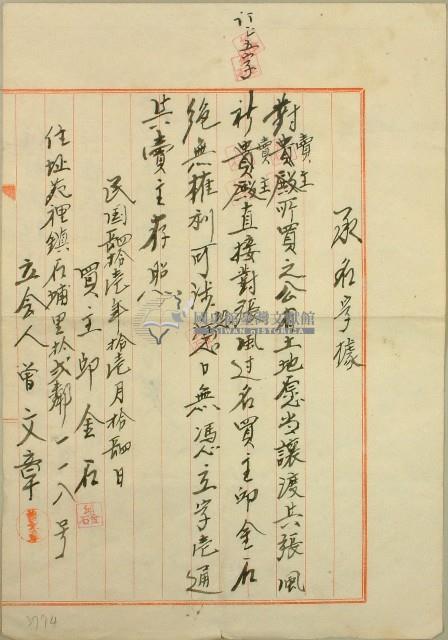 訂正五字
承名字據
賣主
對貴殿所買之公有土地愿当讓渡共張風
賣主
祈貴殿直接對張風过名買主邱金石
絕無權利可涉恐口無憑立字壱通
共賣主存照
民国肆拾壱年拾壱月拾肆日
買主邱金石
住址苑裡鎮石埔里拾弍鄰一一八号
立会人曾文章
3774
國史館臺灣文獻館
TAIWAN HISTORICA